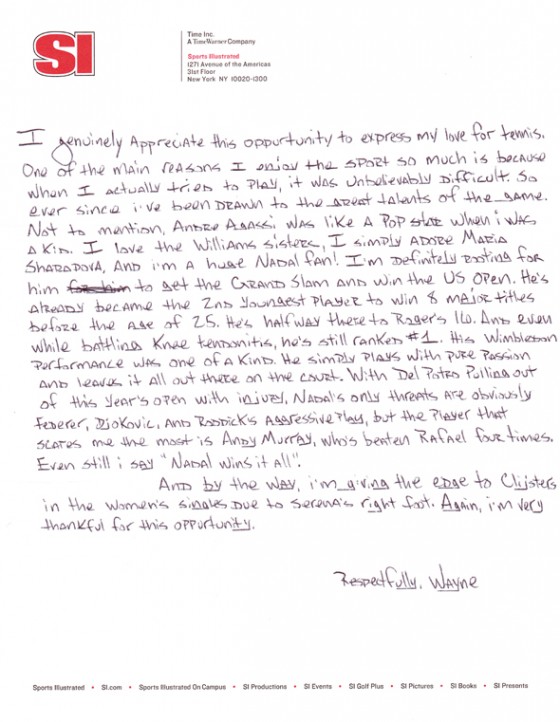 SI
Time Inc.
A TimeWarner Company
Sports Illustrated
1271 Avenue of the Americas
31st Floor
New York NY 10020-1300
I genuinely Appreciate this oppurtunity to express my love for tennis.
One of the main reasons I enjoy the sport so much is because
when I actually tried to play, it was unbelievably difficult. So
ever since i've been drawn to the great talents of the game.
Not to mention, Andre Agassi was like a pop star when i was
a kid. I love the Williams sisters, I simply adore Maria
Sharapova, and i'm a huge Nadal fan! I'm definitely rooting for
him for him to get the Grand Slam and win the US Open. He's
already became the 2nd youngest player to win 8 major titles
before the age of 25. He's halfway there to Roger's 16. And even
while battling knee tendonitis, he's still ranked #1. His Wimbledon
performance was one of a kind. He simply plays with pure passion
and leaves it all out there on the court. With Del Potro pulling out
of this year's open with injury, Nadal's only threats are obviously
Federer, Djokovic, and Roddick's aggressive play, but the player that
scares me the most is Andy Murray, who's beaten Rafael four times.
Even still i say "Nadal wins it all".
And by the way, i'm giving the edge to Clijsters
in the women's singles due to Serena's right foot. Again, i'm very
thankful for this oppurtunity.
Respectfully, Wayne
Sports Illustrated • SI.com • Sports Illustrated On Campus • SI Productions • SI Events • SI Golf Plus • SI Pictures • SI Books • SI Presents